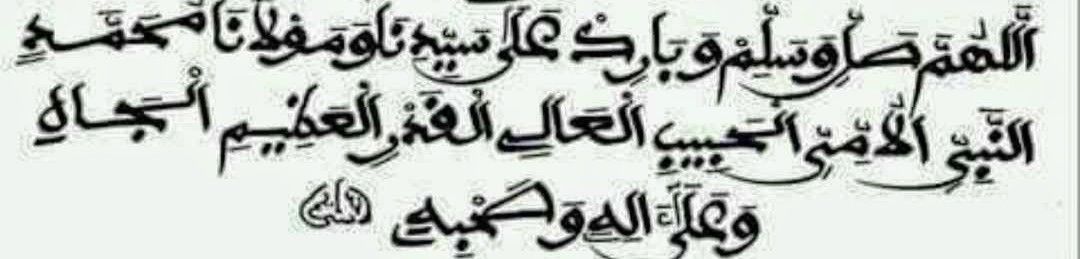 اَللّٰهُمَّ صَلِّ وَسَلِّمْ وَبَارِكْ عَلَى سَيِّدِنَا وَمَوْلَانَا مُحَمَّدٍ
النَّبِيِّ الْأُمِّيِّ الْحَبِيبِ الْعَالِي الْقَدْرِ الْعَظِيمِ الْجَاهِ
وَعَلَى آلِهِ وَصَحْبِهِ